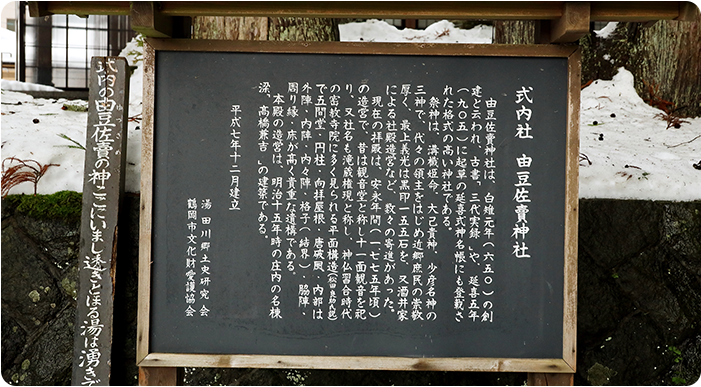 式内社 由豆佐賣神社
由豆佐賣神社は、白雉元年(六五〇)の創
建と云われ、古書、三代実録」や、延喜五年
(九〇五)に起草の延喜式神名帳にも登載さ
れた格式の高い神社である。
祭神は、溝樴姫命、大己貴神、少彦名神の
三神で、代々の領主をはじめ近郷庶民の崇敬
厚く、最上義光は黒印一五五石を、又酒井家
による社殿造営など、数々の寄進があった。
現在の拝殿は、安永年間(一七七五年頃)
の造営で、昔は観音堂と称し十一面観音を祀
り、又社名も滝蔵権現と称し、神仏習合時代
の密教寺院に多く見られる平面構造
で五間堂・円柱・向拝屋根・唐破風、内部は
外陣・内陣・内々陣・格子(結界)・脇陣・
周り縁・床が高く貴重な遺構である。
本殿の造営は、明治十五年時の庄内の名棟
梁、高橋兼吉」の建築である。
平成七年十二月建立
湯田川郷土史研究会
鶴岡市文化財愛護協会
式内の由豆佐賣の神ここにいまし透きとほる湯は湧きて